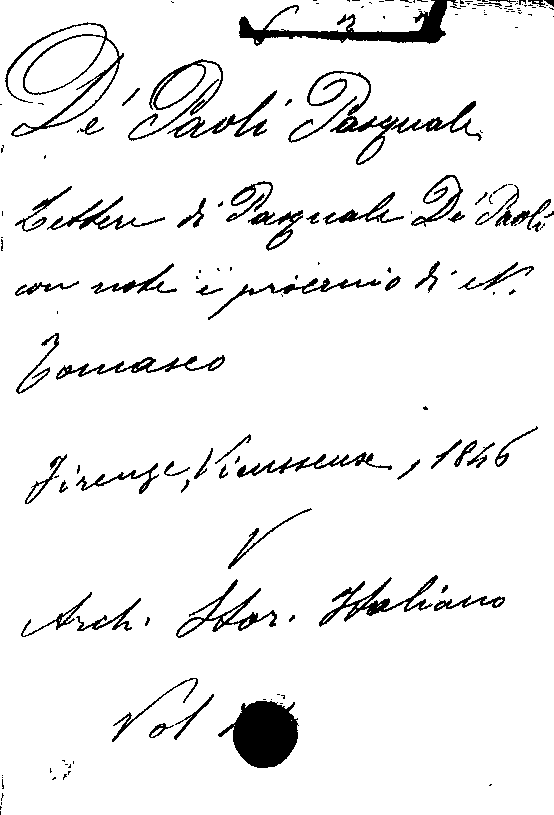 De' Paoli Pasquale
Lettere di Pasquale De' Paoli
con note e proemio di N.
Tomaseo
Firenze, Vieusseux, 1846
V
Arch. Stor. Italiano
Vol